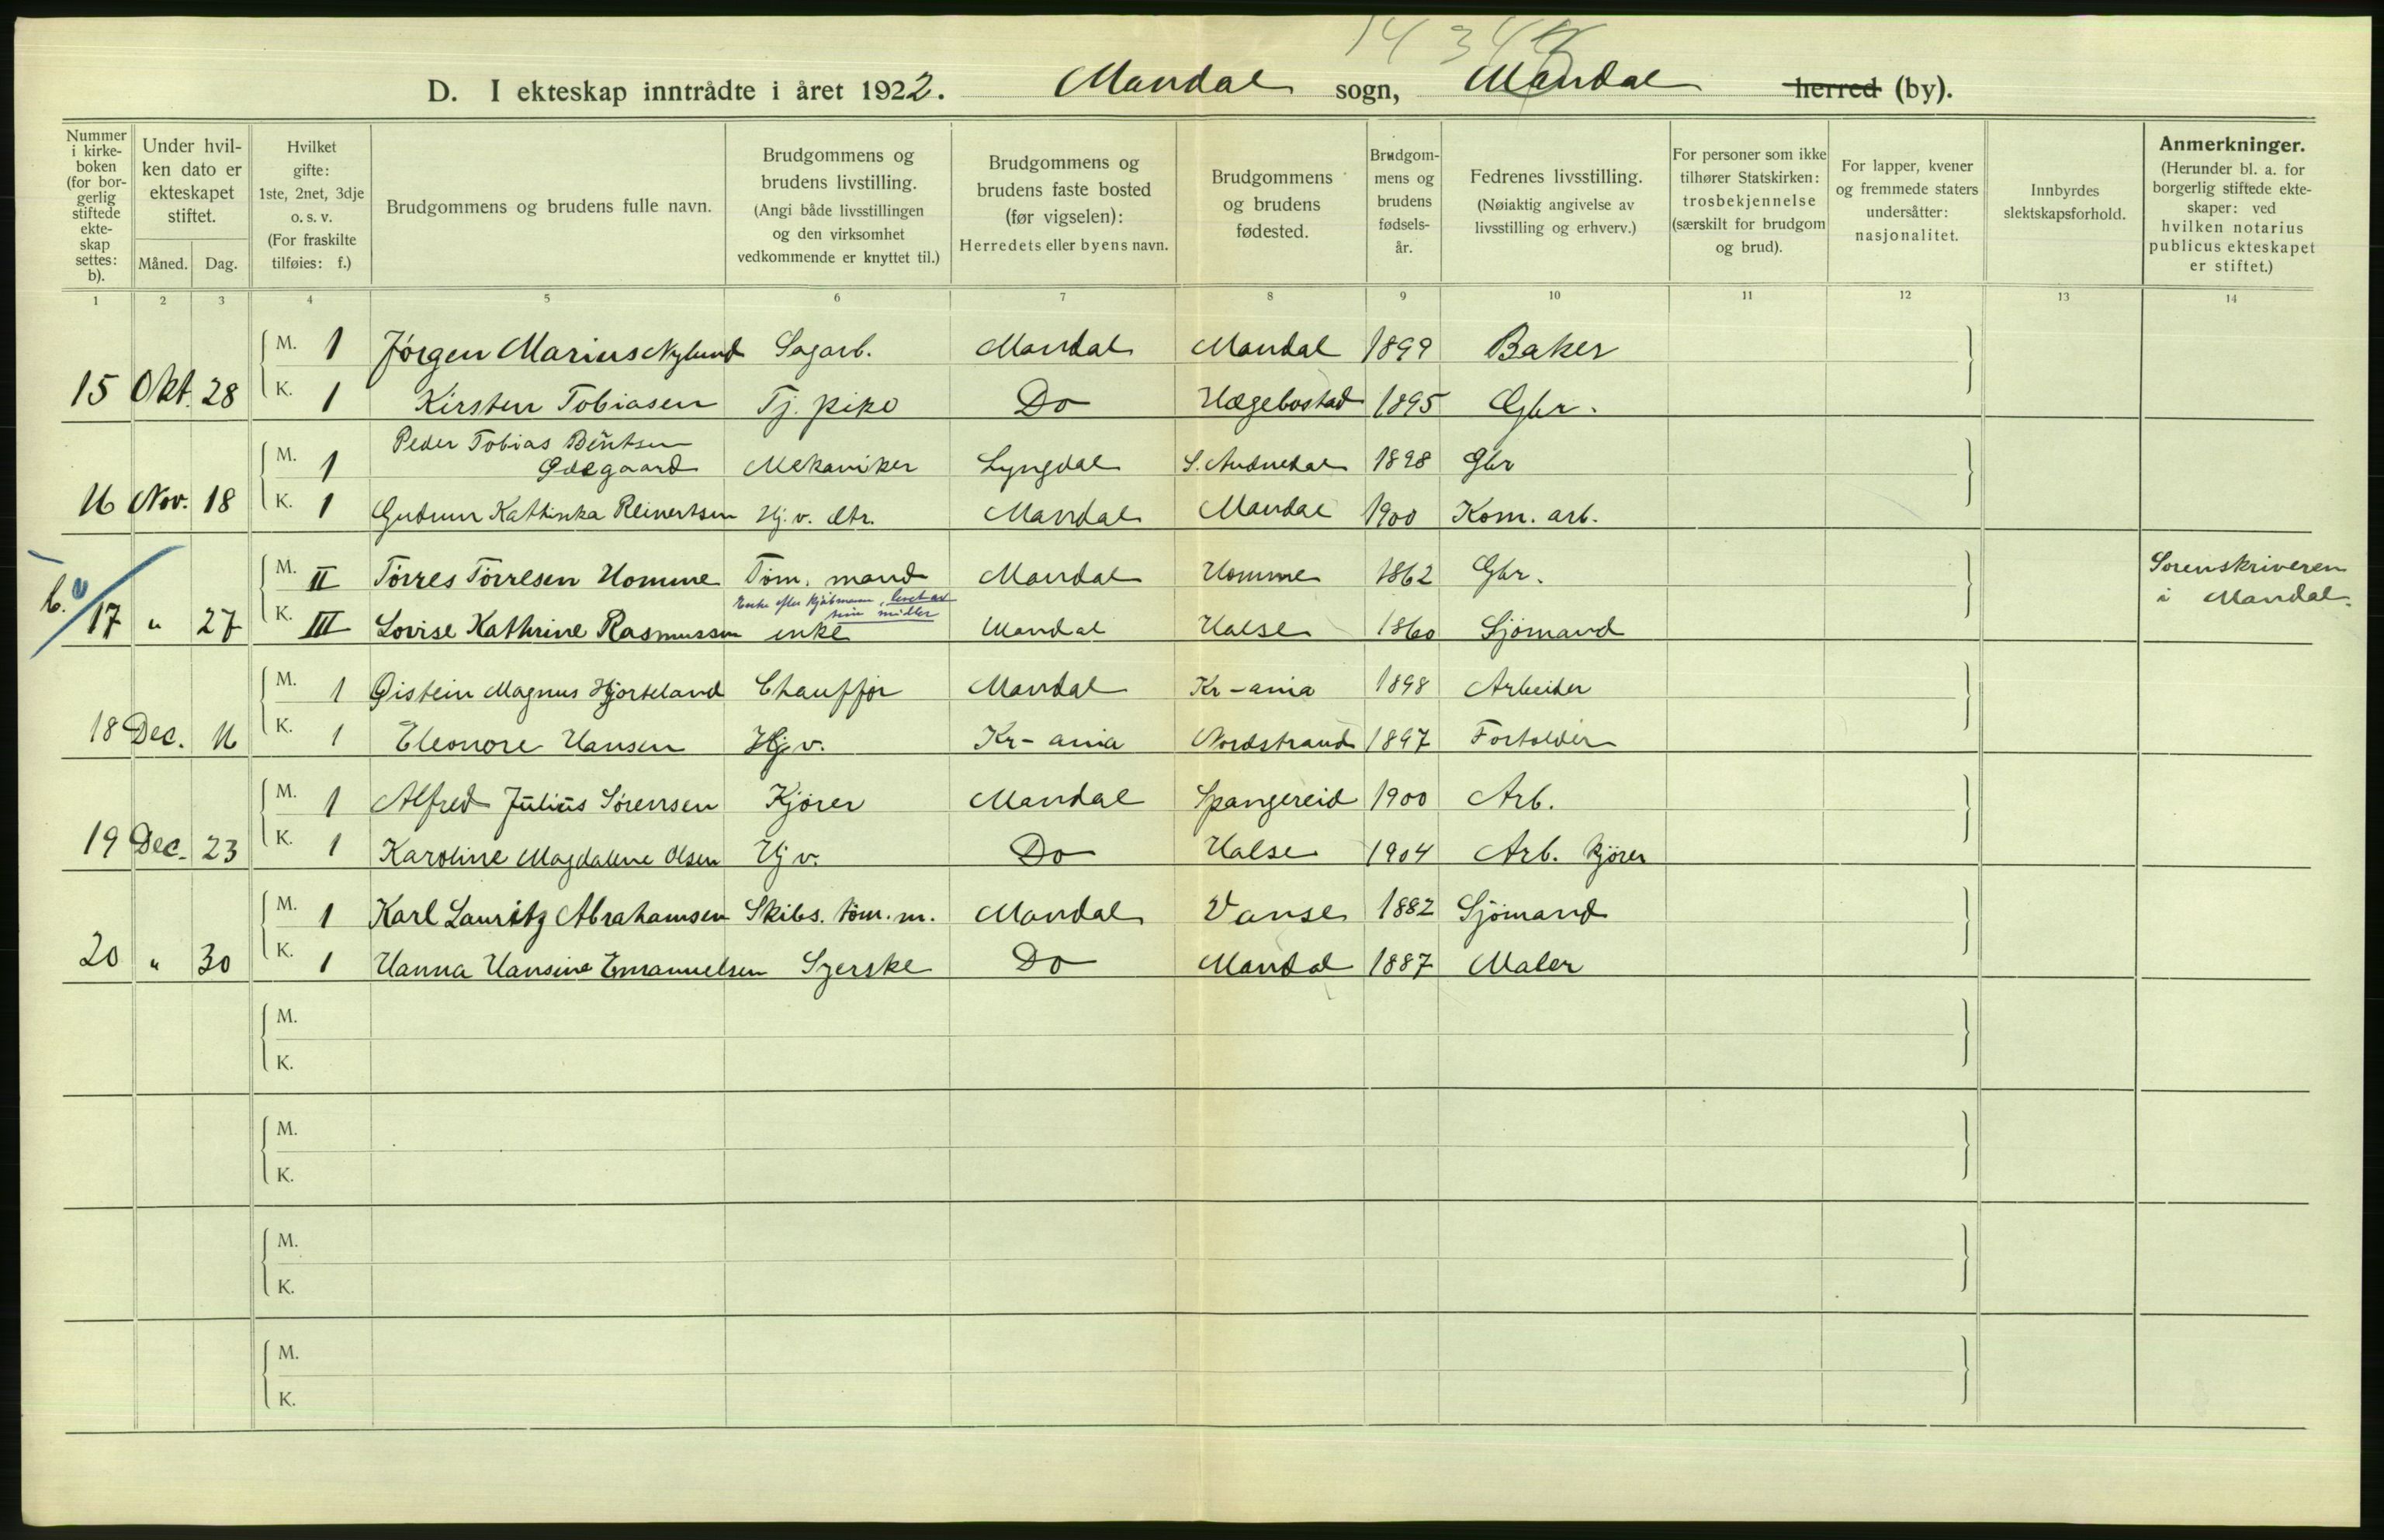 D. I ekteskap inntrådte i året 1922. Mandal sogn, Mandal herred (by).
Nummer i kirkeboken (for borgerlig stiftede ekteskap settes: b).
Under hvilken dato er ekteskapet stiftet.
Måned. Dag.
Hvilket gifte: 1ste, 2net, 3dje o. s. v. (For fraskilte tilføies: f.)
Brudgommens og brudens fulle navn.
Brudgommens og brudens livstilling. (Angi både livsstillingen og den virksomhet vedkommende er knyttet til.)
Brudgommens og brudens faste bosted (før vigselen): Herredets eller byens navn.
Brudgommens og brudens fødested.
Brudgommens og brudens fødselsår.
Fedrenes livsstilling. (Nøiaktig angivelse av livsstilling og erhverv.)
For personer som ikke tilhører Statskirken: trosbekjennelse (særskilt for brudgom og brud).
For lapper, kvener og fremmede staters undersåtter: nasjonalitet.
Innbyrdes slektskapsforhold.
Anmerkninger. (Herunder bl. a. for borgerlig stiftede ekteskaper: ved hvilken notarius publicus ekteskapet er stiftet.)
1 2 3 4 5 6 7 8 9 10 11 12 13 14
M. 1 Jørgen Marius Nylund Sagarb. Mandal Mandal 1899 Baker
15 Okt. 28 K. 1 Kirsten Tobiasen Tj. pike Do Hægebostad 1895 Gbr.
Peder Tobias Bentsen
M. 1 Ødegaard Mekaniker Lyngdal S. Audnedal 1898 Gbr
16 Nov. 18 K. 1 Gudrun Kathinka Reinertsen Hj. v. dtr. Mandal Mandal 1900 Kom. arb.
M. II Tørres Tørresen Homme Tøm. mand Mandal Homme 1862 Gbr. Sorenskriveren
i Mandal.
Enke efter Kjøbmann, levet av
sine midler
b. 17 " 27 K. III Lovise Kathrine Rasmussen enke Mandal Halse 1860 Sjømand
M. 1 Øistein Magnus Hjorteland Chauffør Mandal Kr-ania 1898 Arbeider
18 Dec. 16 K. 1 Eleonore Hansen Hj. v. Kr-ania Nordstrand 1897 Fortolder
M. 1 Alfred Julius Sørensen Kjører Mandal Spangereid 1900 Arb.
19 Dec. 23 K. 1 Karoline Magdalene Olsen Hj v. Do Halse 1904 Arb. Kjører
M. 1 Karl Lauritz Abrahamsen Skibs. tøm. m. Mandal Vanse 1882 Sjømand
20 " 30 K. 1 Hanna Hansine Emanuelsen Syerske Do Mandal 1887 Maler
M.
K.
M.
K.
M.
K.
M.
K.